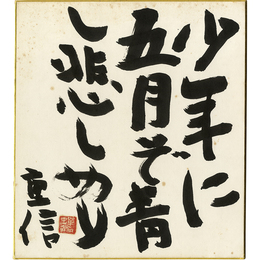 少年に
五月ぞ青
し悲しめり
重信